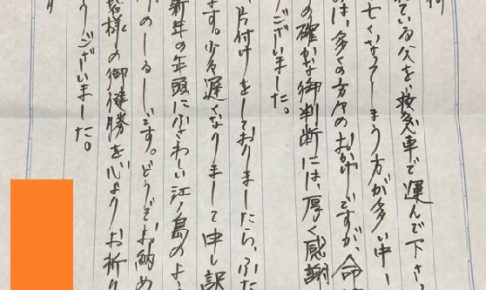 ている父を、救急車で運んで下さ
亡くなってしまう方が多い中
は、多くの方々のおかげですが、命
の確かな御判断には、厚く感謝
ございました。
片付けをしておりましたら、ふた
ます。少々遅くなりまして申し訳
新年の年頭にふさわしい江ノ島のよ
のしるしです。どうぞお納め
皆様の御健勝を心よりお祈り
うございました。
月